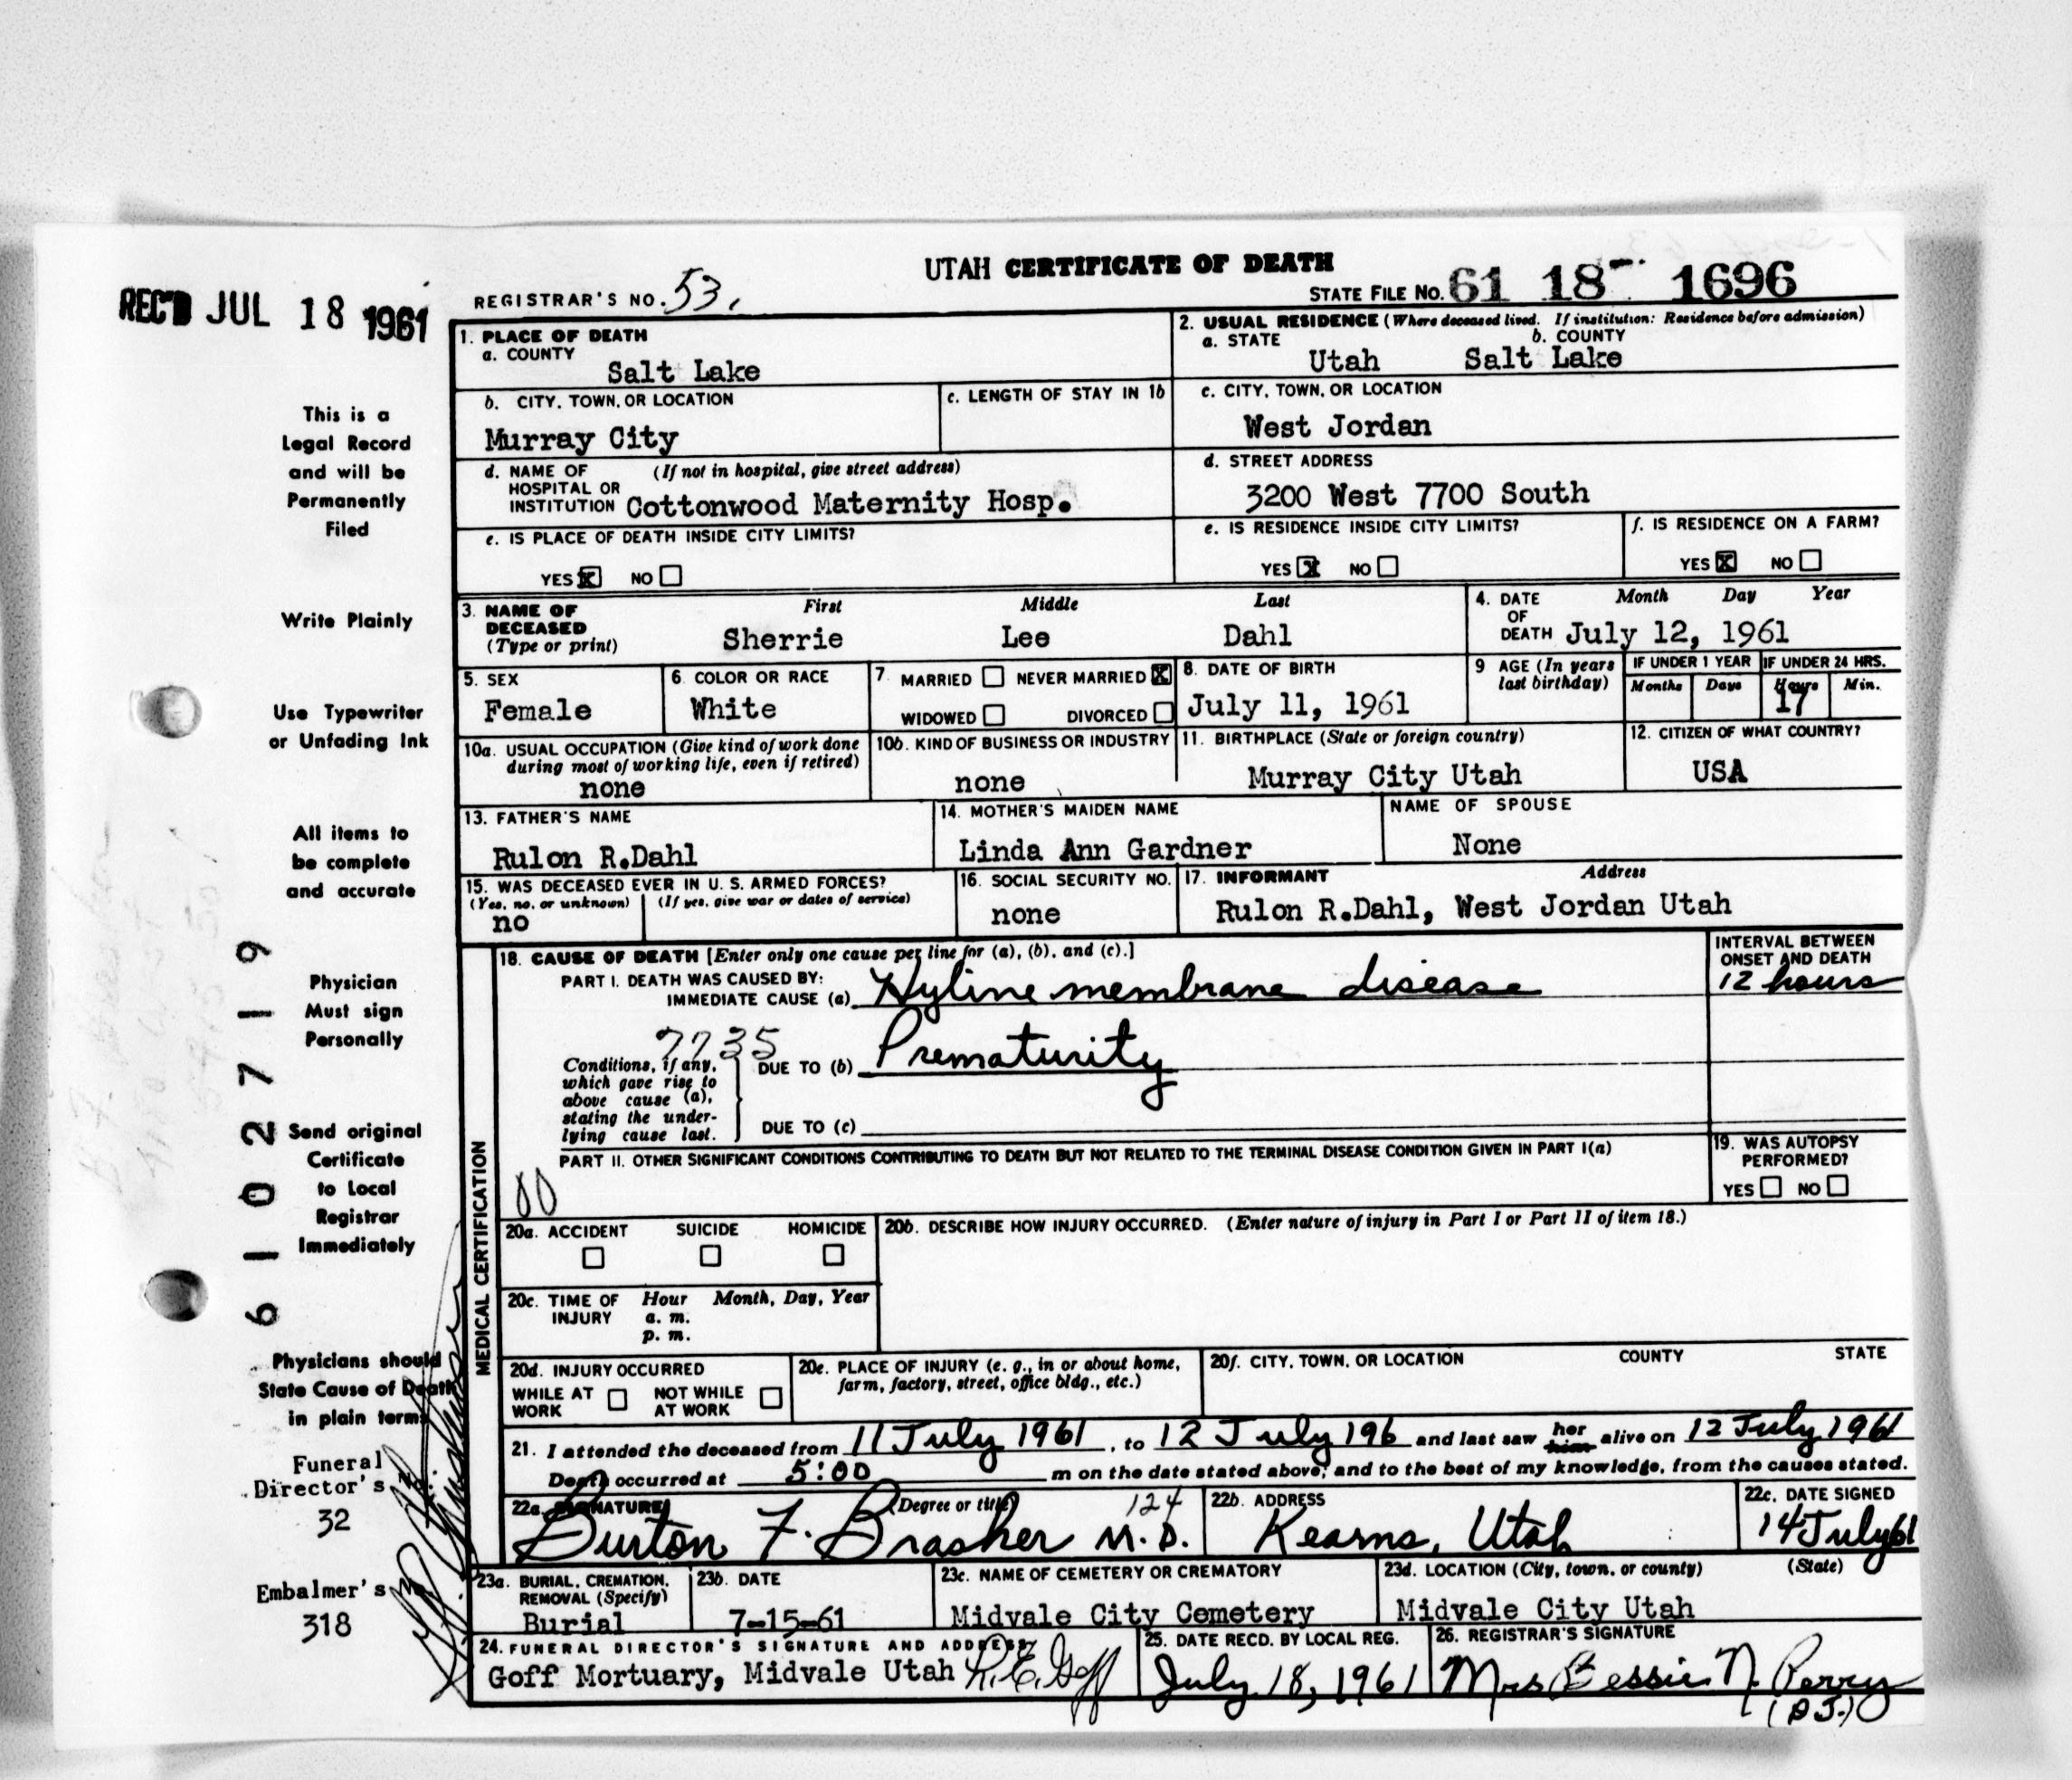 UTAH CERTIFICATE OF DEATH
REC'D JUL 18 1961
REGISTRAR'S NO. 53.
STATE FILE NO. 61 18 1696
1. PLACE OF DEATH
a. COUNTY
Salt Lake
2. USUAL RESIDENCE (Where deceased lived. If institution: Residence before admission)
a. STATE b. COUNTY
Utah Salt Lake
b. CITY, TOWN, OR LOCATION
Murray City
c. LENGTH OF STAY IN 1b
c. CITY, TOWN, OR LOCATION
West Jordan
d. NAME OF (If not in hospital, give street address)
HOSPITAL OR
INSTITUTION Cottonwood Maternity Hosp.
d. STREET ADDRESS
3200 West 7700 South
e. IS PLACE OF DEATH INSIDE CITY LIMITS?
YES X NO
e. IS RESIDENCE INSIDE CITY LIMITS?
YES X NO
f. IS RESIDENCE ON A FARM?
YES X NO
3. NAME OF DECEASED (Type or print)
First Middle Last
Sherrie Lee Dahl
4. DATE OF DEATH Month Day Year
July 12, 1961
5. SEX
Female
6. COLOR OR RACE
White
7. MARRIED NEVER MARRIED X
WIDOWED DIVORCED
8. DATE OF BIRTH
July 11, 1961
9 AGE (In years last birthday)
IF UNDER 1 YEAR IF UNDER 24 HRS.
Months Days Hours Min.
17
10a. USUAL OCCUPATION (Give kind of work done
during most of working life, even if retired)
none
10b. KIND OF BUSINESS OR INDUSTRY
none
11. BIRTHPLACE (State or foreign country)
Murray City Utah
12. CITIZEN OF WHAT COUNTRY?
USA
13. FATHER'S NAME
Rulon R.Dahl
14. MOTHER'S MAIDEN NAME
Linda Ann Gardner
NAME OF SPOUSE
None
15. WAS DECEASED EVER IN U. S. ARMED FORCES?
(Yes, no, or unknown) (If yes, give war or dates of service)
no
16. SOCIAL SECURITY NO.
none
17. INFORMANT Address
Rulon R.Dahl, West Jordan Utah
MEDICAL CERTIFICATION
18. CAUSE OF DEATH [Enter only one cause per line for (a), (b), and (c).]
PART I. DEATH WAS CAUSED BY:
IMMEDIATE CAUSE (a) Hyline membrane disease
INTERVAL BETWEEN
ONSET AND DEATH
12 hours
7735
Conditions, if any,
which gave rise to
above cause (a),
stating the under-
lying cause last.
DUE TO (b) Prematurity
DUE TO (c)
PART II. OTHER SIGNIFICANT CONDITIONS CONTRIBUTING TO DEATH BUT NOT RELATED TO THE TERMINAL DISEASE CONDITION GIVEN IN PART I(a)
00
19. WAS AUTOPSY
PERFORMED?
YES NO
20a. ACCIDENT SUICIDE HOMICIDE
20b. DESCRIBE HOW INJURY OCCURRED. (Enter nature of injury in Part I or Part II of item 18.)
20c. TIME OF INJURY Hour Month, Day, Year
a. m.
p. m.
20d. INJURY OCCURRED
WHILE AT WORK NOT WHILE AT WORK
20e. PLACE OF INJURY (e. g., in or about home,
farm, factory, street, office bldg., etc.)
20f. CITY, TOWN, OR LOCATION COUNTY STATE
21. I attended the deceased from 11 July 1961, to 12 July 196 and last saw her him alive on 12 July 1961
Death occurred at 5:00 m on the date stated above; and to the best of my knowledge, from the causes stated.
22a. SIGNATURE (Degree or title) 124
Burton F. Brasher M.D.
22b. ADDRESS
Kearns, Utah
22c. DATE SIGNED
14 July 61
23a. BURIAL, CREMATION,
REMOVAL (Specify)
Burial
23b. DATE
7-15-61
23c. NAME OF CEMETERY OR CREMATORY
Midvale City Cemetery
23d. LOCATION (City, town, or county) (State)
Midvale City Utah
24. FUNERAL DIRECTOR'S SIGNATURE AND ADDRESS
Goff Mortuary, Midvale Utah R.E. Goff
25. DATE RECD. BY LOCAL REG.
July 18, 1961
26. REGISTRAR'S SIGNATURE
Mrs Bessie N. Perry
(P.J.)
This is a
Legal Record
and will be
Permanently
Filed
Write Plainly
Use Typewriter
or Unfading Ink
All items to
be complete
and accurate
Physician
Must sign
Personally
Send original
Certificate
to Local
Registrar
Immediately
Physicians should
State Cause of Death
in plain terms
Funeral
Director's No.
32
Embalmer's No.
318
61 02719